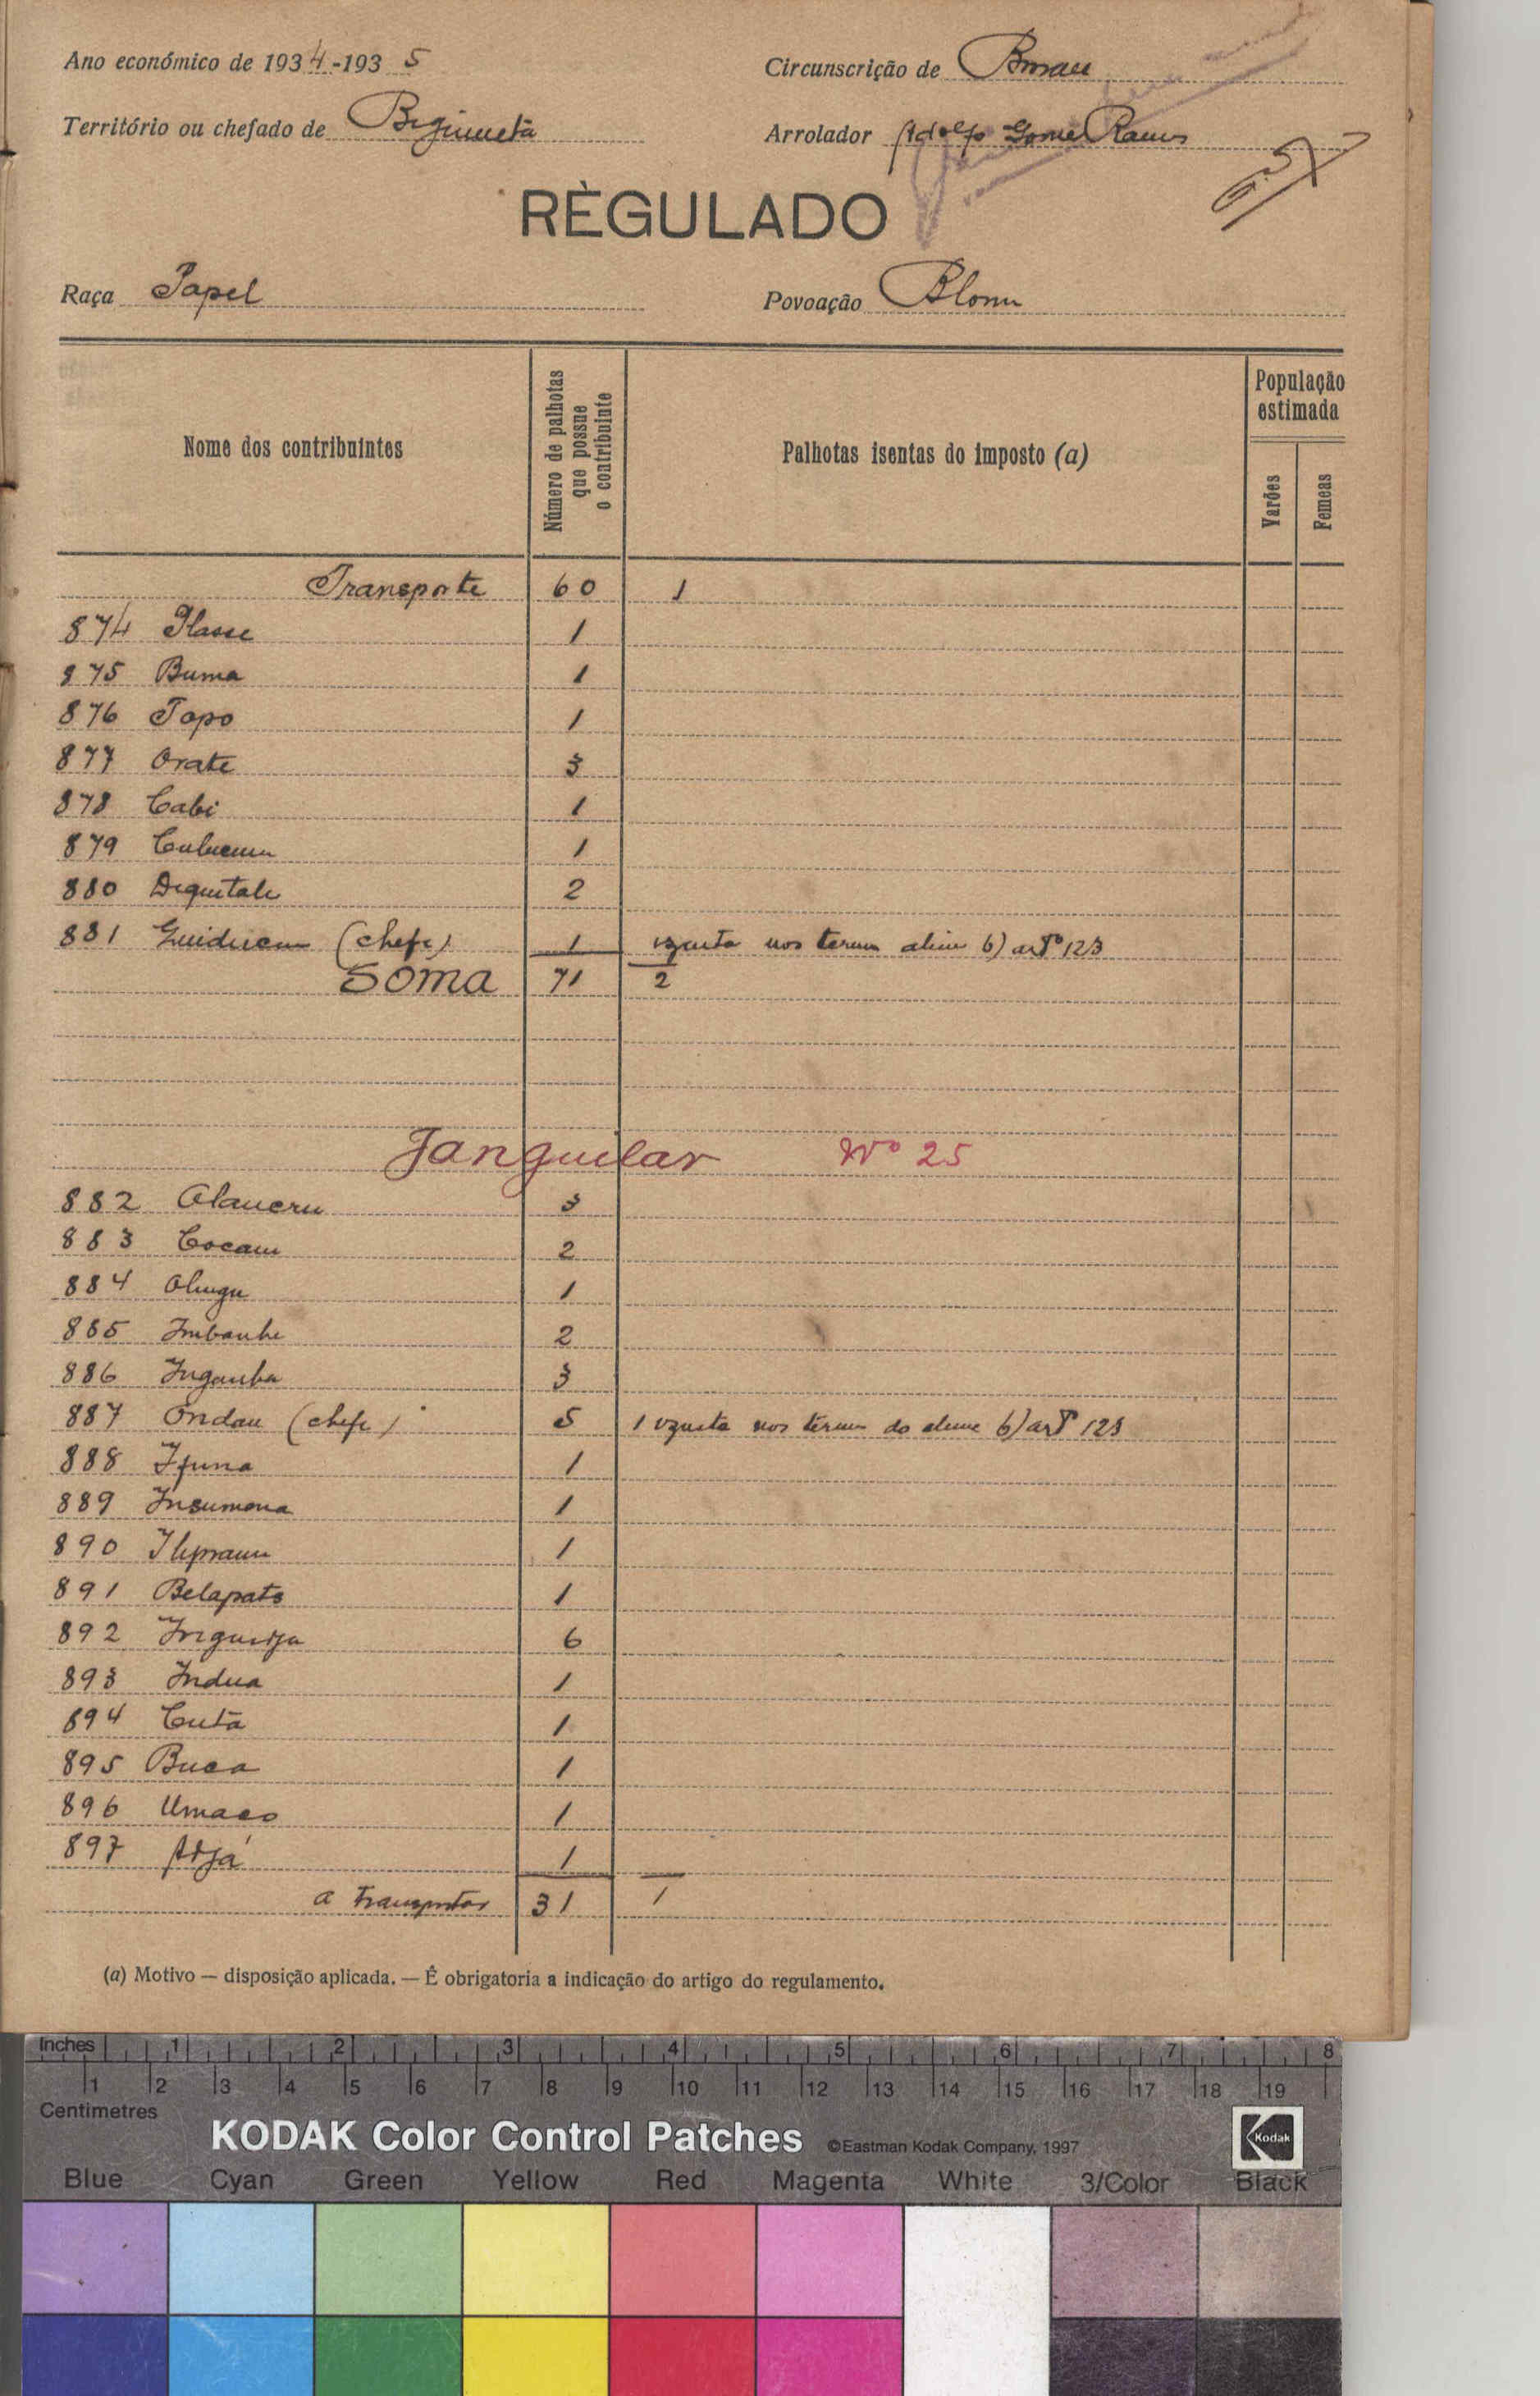 Ano económico de 1934-1935
Circunscrição de Bissau
Território ou chefado de
Arrolador Adolfo Gomes Ramos
RÈGULADO
Raça Papel
Povoação Blom
Nome dos contribuintes
Número de palhotas que possue o contribuinte
Palhotas isentas do imposto (a)
População estimada
Varões
Femeas
Transporte 60 1
874 1
875 Buma 1
876 Topo 1
877 Orate 3
878 Cabi 1
879 1
880 Diquitale 2
881 (chefe) 1 nos termos b) artº 123
Soma 71 2
Janguilar Nº 25
882 3
883 Cocam 2
884 1
885 Imbanhe 2
886 3
887 Ondau (chefe) 5 1 nos termos b) artº 123
888 Ifuna 1
889 Insumona 1
890 1
891 Belapate 1
892 6
893 Indua 1
894 Cutà 1
895 Buca 1
896 Umaco 1
897 1
a transportar 31 1
(a) Motivo — disposição aplicada. — É obrigatoria a indicação do artigo do regulamento.
Inches 1 2 3 4 5 6 7 8
1 2 3 4 5 6 7 8 9 10 11 12 13 14 15 16 17 18 19
Centimetres
KODAK Color Control Patches ©Eastman Kodak Company, 1997 Kodak
Blue Cyan Green Yellow Red Magenta White 3/Color Black